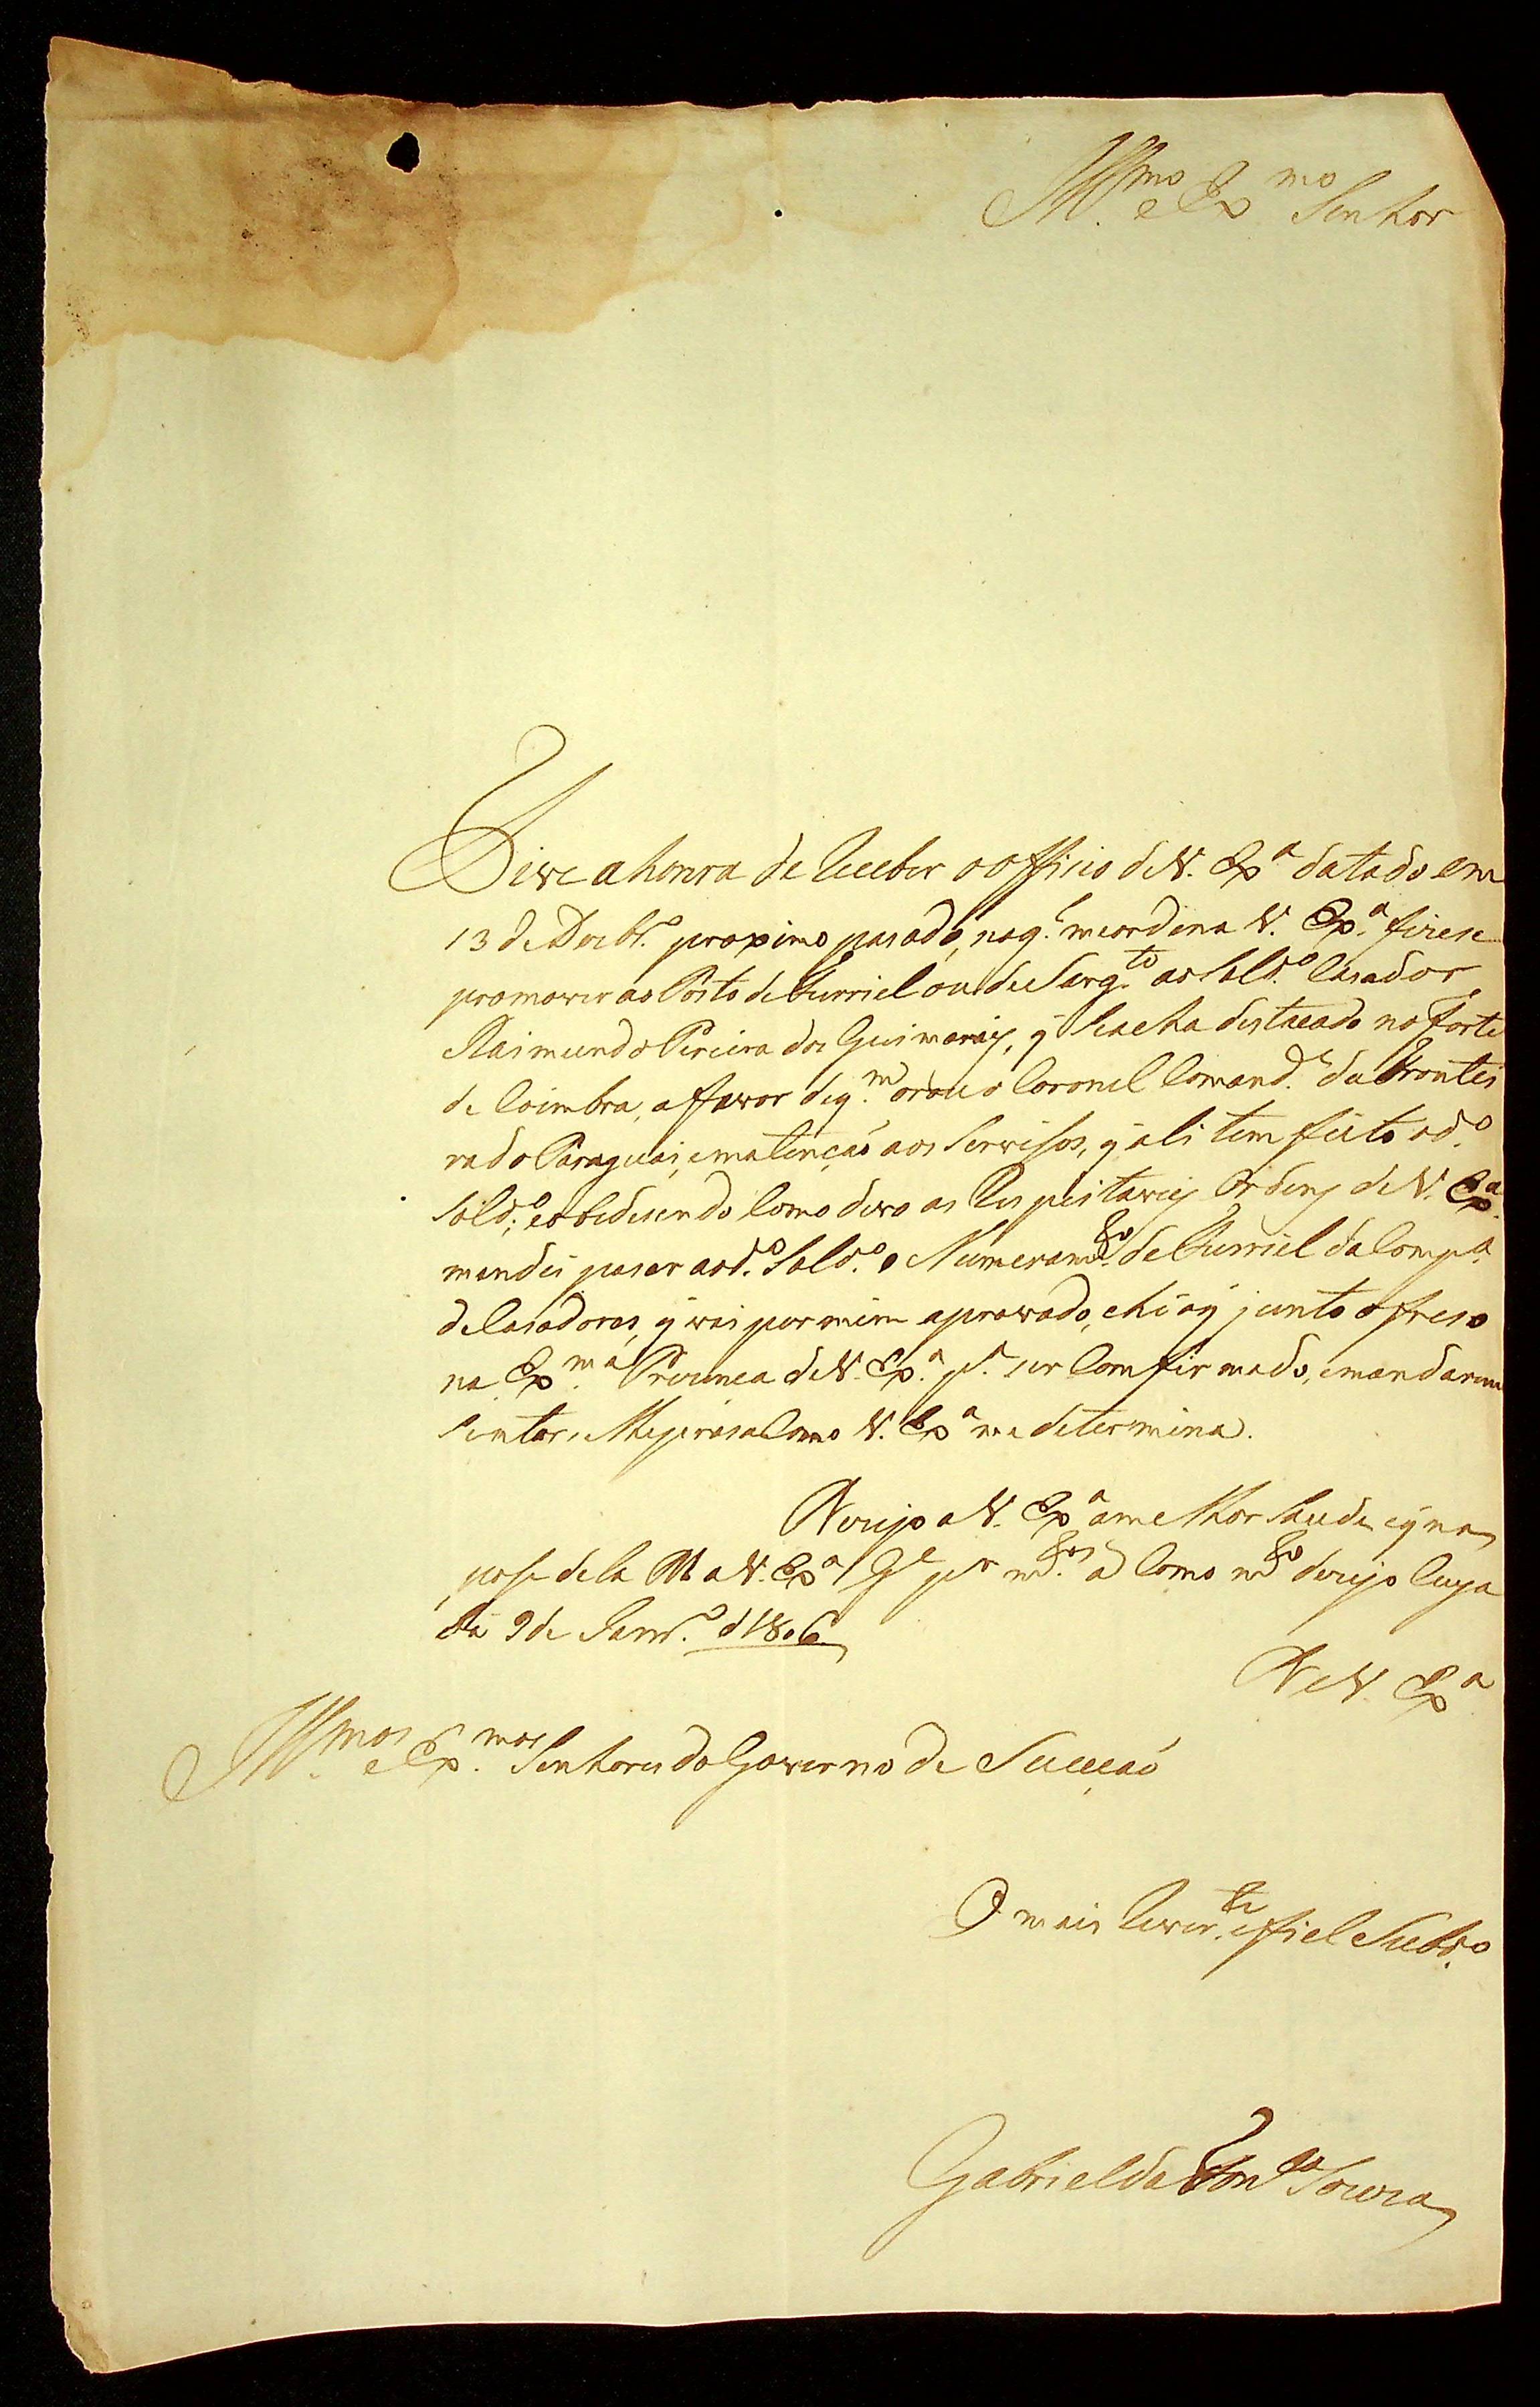 Ill.mo e Ex.mo Senhor
Tive a honra de Receber o officio de V. Ex.a datado em
13 de Dezbr.o proximo pasado, naq.l me ordena V. Ex.a fizese
promover ao Posto de Furriel ou de Sarg.to ao Sold.o Casador
Raimundo Pereira dos Guimaraiz, q̃ se acha destacado no Forte
de Coimbra, a ffavor deq.m orou o Coronel Comand.e da Frontei
ra do Paraguai, ematenção aos Servisos, q̃ ali tem feito o d.o
Sold.o; e obedesendo Como devo as Respeitaveiz Ordenz de V. Ex.a
mandei pasar aod.o Sold.o o Numeram.to de Furriel da Comp.a
de Casadores, q̃ vai por mim aprovado, e hé o q̃ junto ofreso
na Ex.ma Prezença de V. Ex.a p.a ser Comfirmado, e mandarem
Sentar, Praça Como V. Ex.a me determina.
Dezejo a V. Ex.a a melhor Saude, e q̃ na
pose dela D.s a V. Ex.a G.e p.r m.tos a Como m.to dezejo Cuya
bá 9 de Janr.o d 1806
De V. Ex.a
Ill.mos e Ex.mos Senhores do Governo de Suceção
O mais Rever.te e fiel Subd.o
Gabriel da Fon.ca Souza